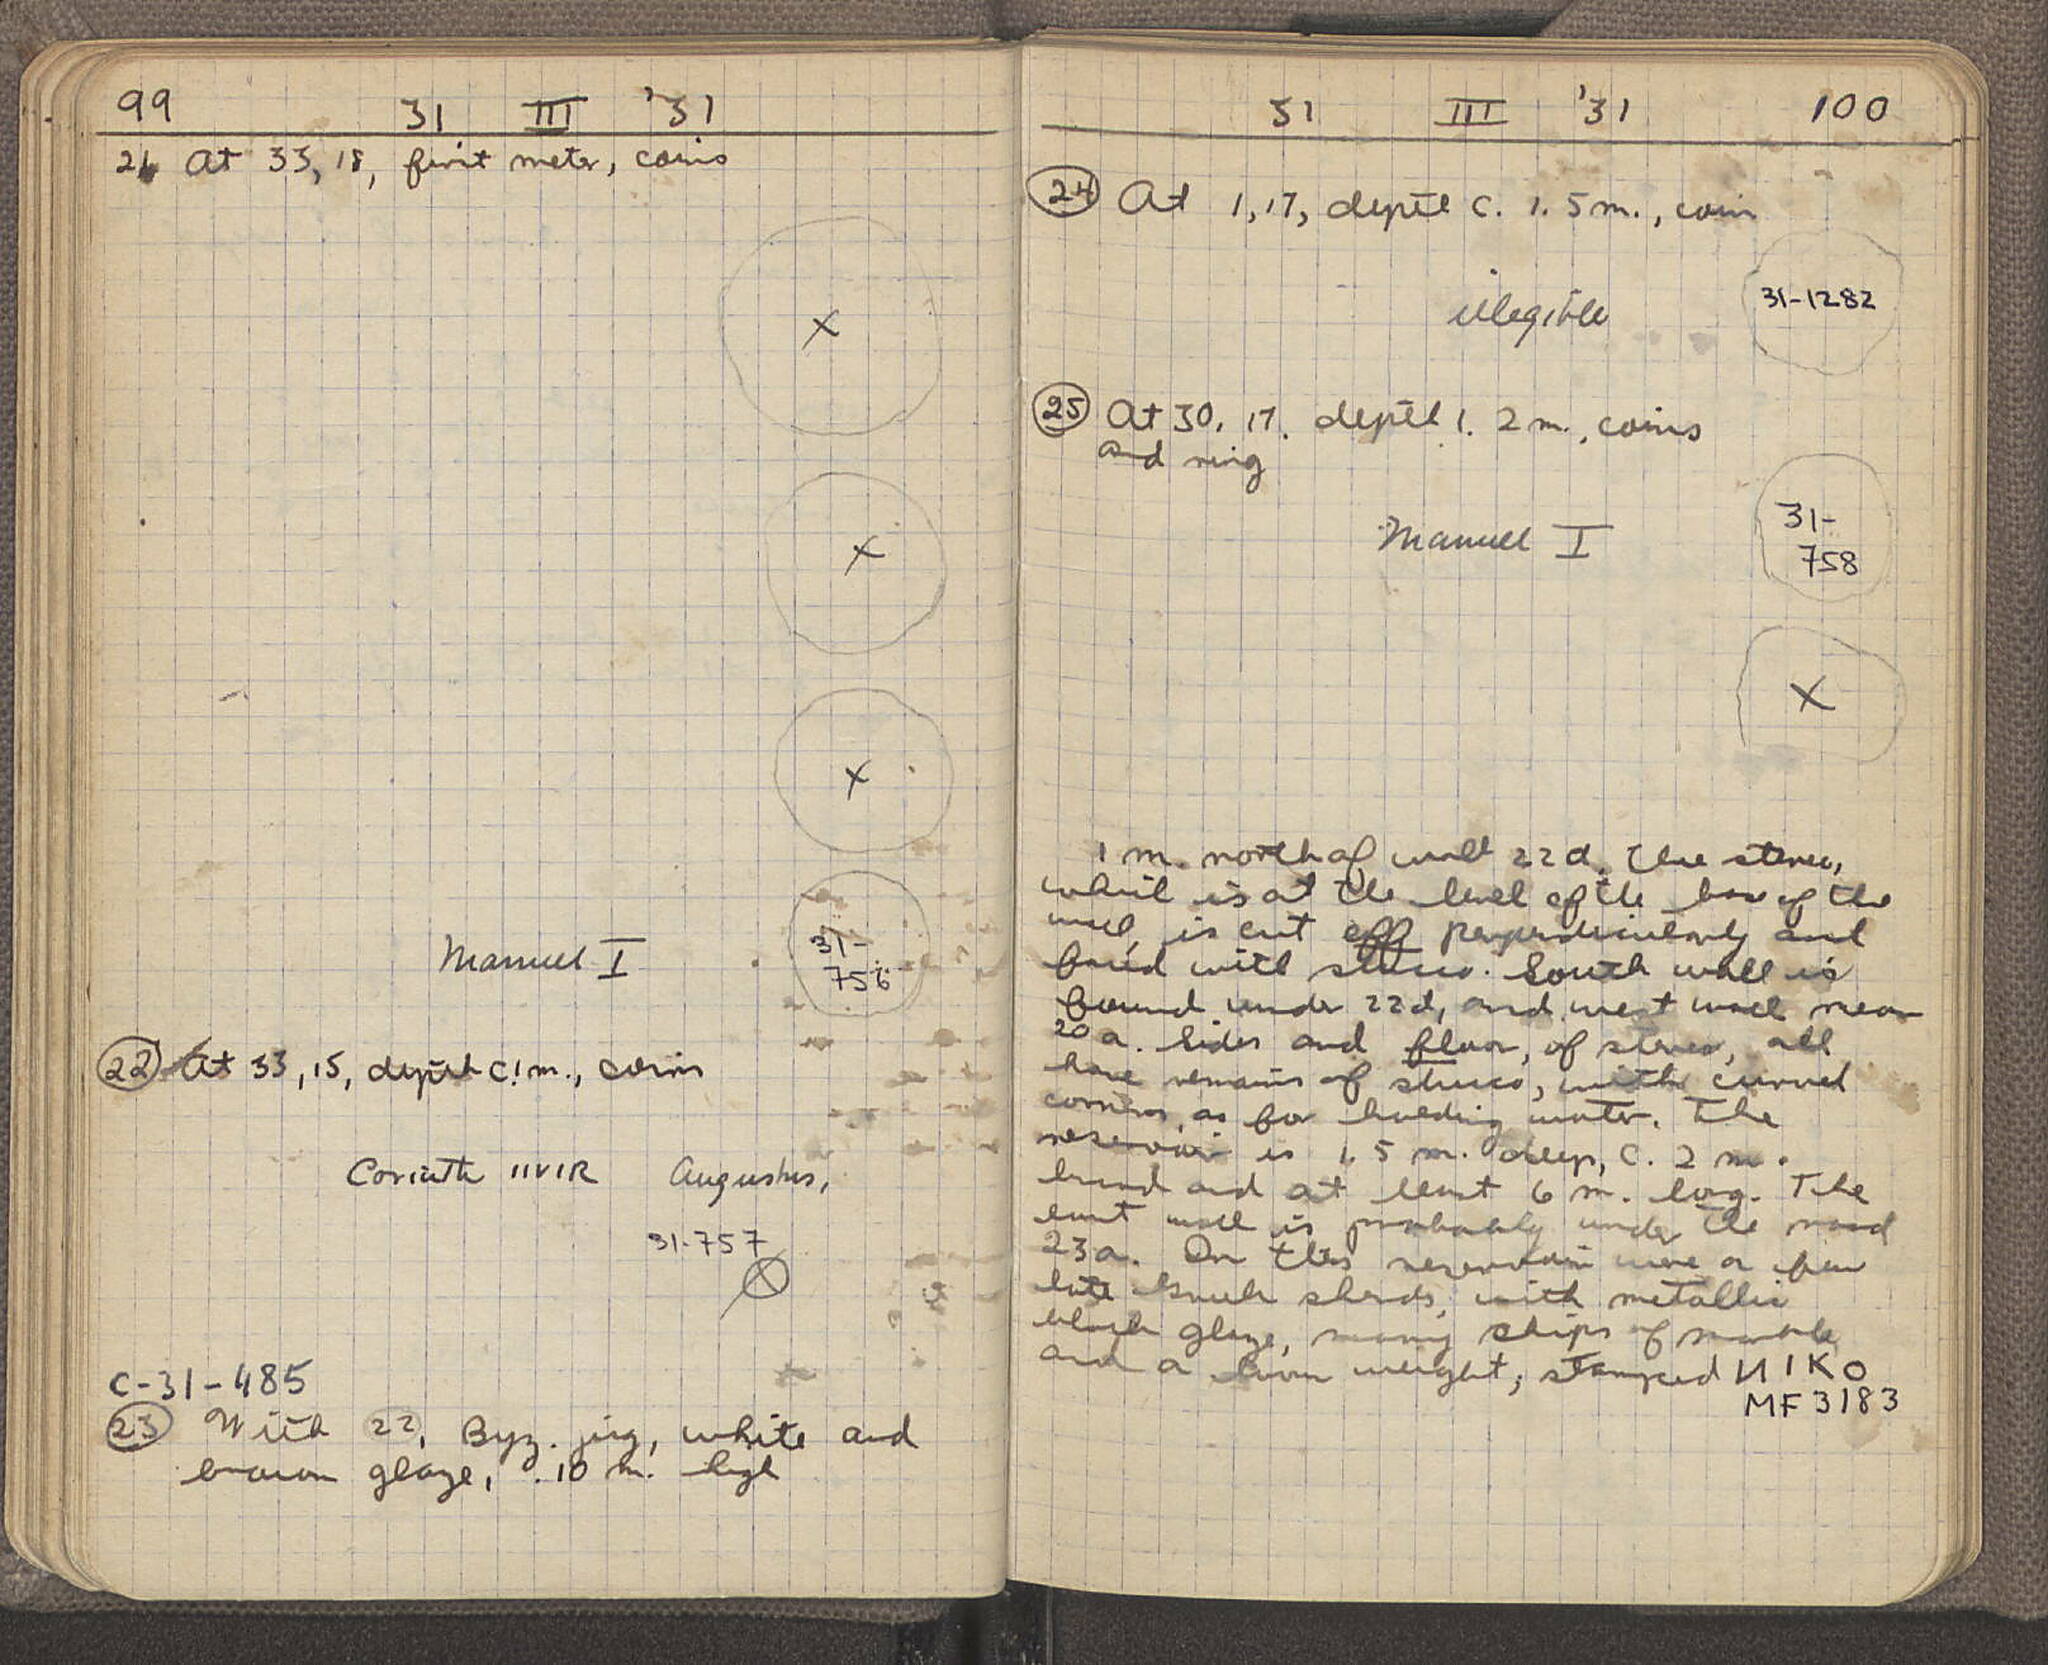 99 31 III '31
21 At 33, 18, first meter, coins
X
X
X
Manuel I
31-
756
22 At 33, 15, depth c 1 m., coins
Corinth IIVIR Augustus,
31-757
X
C-31-485
23 With 22, Byz. jug, white and
brown glaze, .10 m. high
31 III '31 100
24 At 1, 17, depth c. 1.5 m., coin
illegible
31-1282
25 At 30, 17, depth 1.2 m., coins
and ring
Manuel I
31-
758
X
1 m. north of wall 22d, the stereo,
which is at the level of the base of the
wall, is cut off perpendicularly and
faced with stucco. South wall is
found under 22d, and west wall near
20a. Sides and floor, of stereo, all
have remains of stucco, with curved
corners, as for holding water. The
reservoir is 1.5 m. deep, c. 2 m.
broad and at least 6 m. long. The
east wall is probably under the road
23a. In this reservoir were a few
late Greek sherds, with metallic
black glaze, many chips of marble
and a loom weight, stamped NIKO
MF 3183